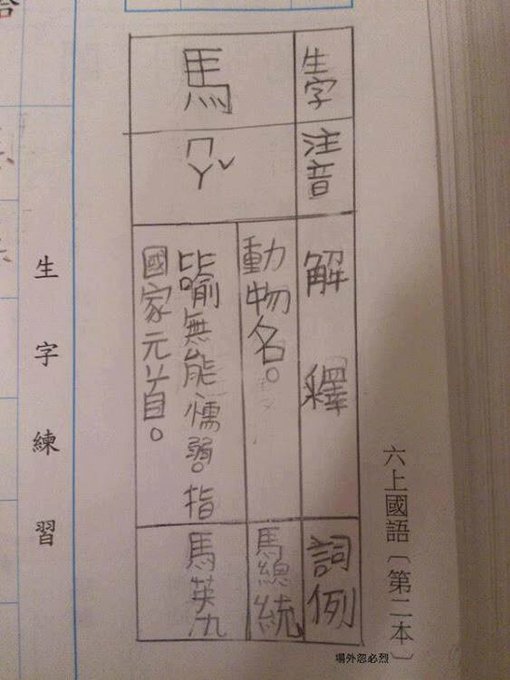 六上國語〔第二本〕
生字
馬
注音
ㄇㄚˇ
解釋
動物名。
比喻無能懦弱。指
國家元首。
詞例
馬總統
馬英九
生字練習
場外忽必烈